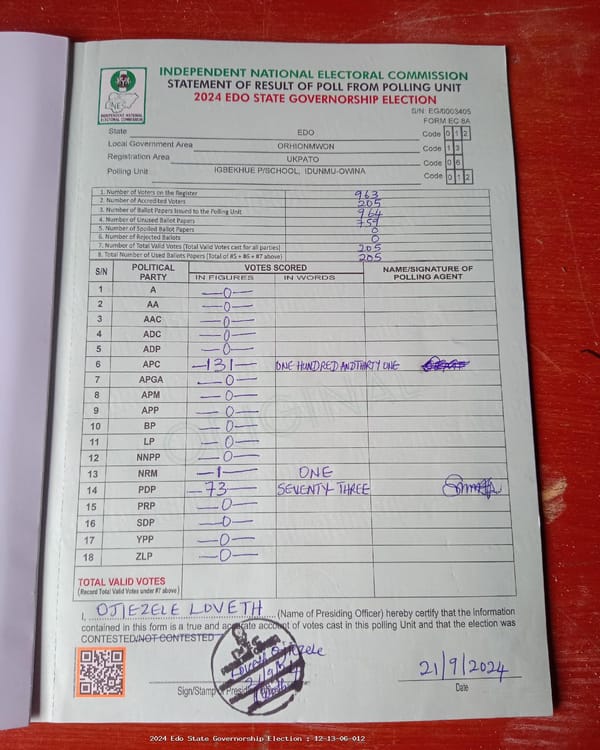 INDEPENDENT NATIONAL ELECTORAL COMMISSION
STATEMENT OF RESULT OF POLL FROM POLLING UNIT
2024 EDO STATE GOVERNORSHIP ELECTION
INEC
INDEPENDENT NATIONAL
ELECTORAL COMMISSION
S/N: EG/0003405
FORM EC 8A
State EDO Code 0 1 2
Local Government Area ORHIONMWON Code 1 3
Registration Area UKPATO Code 0 6
Polling Unit IGBEKHUE P/SCHOOL, IDUNMU-OWINA Code 0 1 2
1. Number of Voters on the Register 963
2. Number of Accredited Voters 205
3. Number of Ballot Papers Issued to the Polling Unit 964
4. Number of Unused Ballot Papers 759
5. Number of Spoiled Ballot Papers 0
6. Number of Rejected Ballots 0
7. Number of Total Valid Votes (Total Valid Votes cast for all parties) 205
8. Total Number of Used Ballots Papers (Total of #5 + #6 + #7 above) 205
S/N POLITICAL PARTY VOTES SCORED NAME/SIGNATURE OF POLLING AGENT
IN FIGURES IN WORDS
1 A —0—
2 AA —0—
3 AAC —0—
4 ADC —0—
5 ADP —0—
6 APC —131— ONE HUNDRED AND THIRTY ONE
7 APGA —0—
8 APM —0—
9 APP —0—
10 BP —0—
11 LP —0—
12 NNPP —0—
13 NRM —1— ONE
14 PDP —73— SEVENTY THREE
15 PRP —0—
16 SDP —0—
17 YPP —0—
18 ZLP —0—
ORIGINAL
TOTAL VALID VOTES
(Record Total Valid Votes under #7 above)
I, OJIEZELE LOVETH (Name of Presiding Officer) hereby certify that the information
contained in this form is a true and accurate account of votes cast in this polling Unit and that the election was
CONTESTED/NOT CONTESTED
Loveth Ojiezele
21/9/24
Sign/Stamp of Presiding
21/9/2024
Date
2024 Edo State Governorship Election : 12-13-06-012